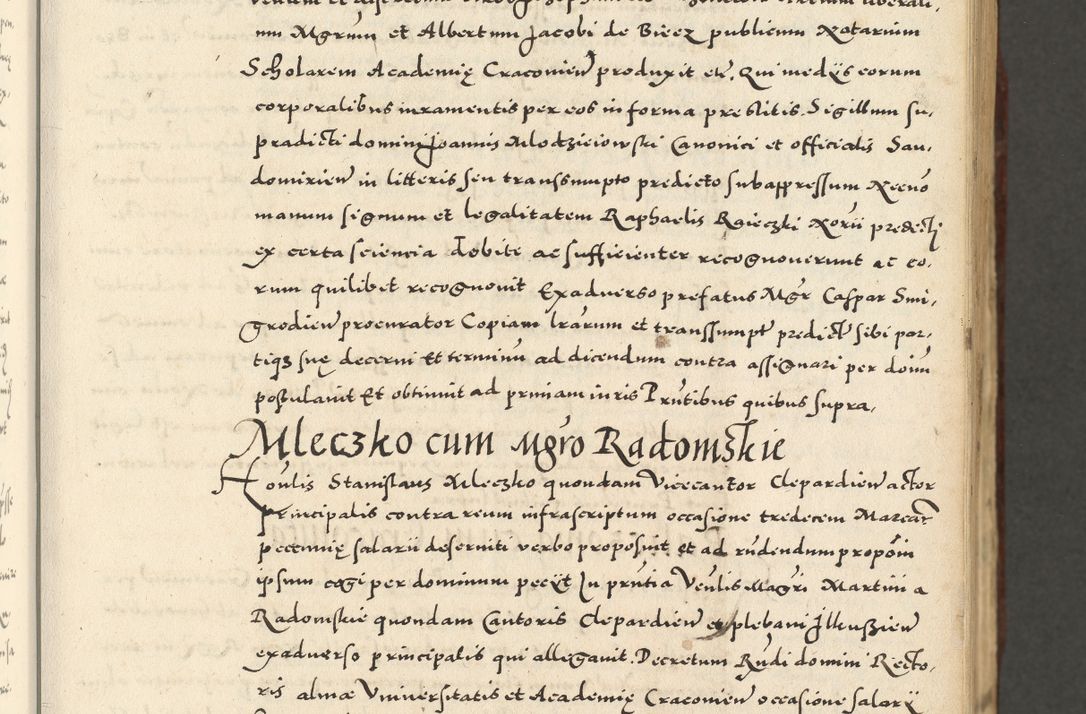 num Mgrum et Albertum Jacobi de Bieez publicum Notarium
Scholarem Academię Cracovien produxit etc. Qui medys eorum
corporalibus iuramentis per eos in forma prestitis. Sigillum su,
pradicti domini Joannis Mlodzieiowski Canonici et officialis San,
domirien in litteris seu transsumpto predicto subappressum Necnō
manum signum et legalitatem Raphaelis Raieczki Norii predicti
ex certa sciencia debite ac sufficienter recognoverunt ac eo,
rum quilibet recognovit Exadverso prefatus Mgr Caspar Smi,
grodien procurator Copiam lrarum et transsumpt predict sibi par,
tiqз suę decerni Et terminū ad dicendum contra assignari per doīnū
postulavit Et obtinuit ad primam iuris Prn̄tibus quibus supra,
Mleczko cum Mgro Radomskie
Hoūlis Stanislaus Mleczko quondam Vicecantor Clepardien actor
principalis contra reum infrascriptum occasione tredecem Marcar
pecunię salarii deserviti verbo proposuit et ad rūdendum propōīn
ipsum cogi per dominum pecyt In prn̄tia Venlis Magri Martini a
Radomskie quondam Cantoris Clepardien et plebani Jlkuszien
exadverso principalis qui allegavit. Decretum Rn̄di domini Recto,
ris almæ Vniversitatis et Academię Cracovien occasione salary